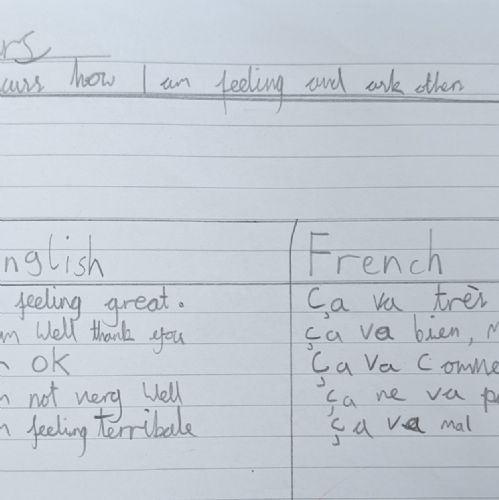 ers
cuss how I am feeling and ask other
nglish French
feeling great. Ça va très
am well thank you ça va bien, M
OK Ça va Comme
not very well ça ne va p
feeling terribale ça va mal